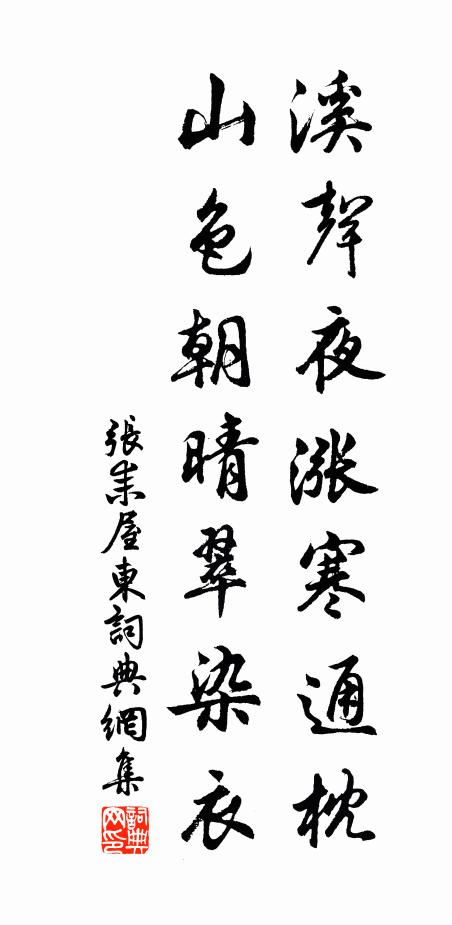 溪聲夜漲寒通枕
山色朝晴翠染衣
張耒屋東詞典網集
詞典网印